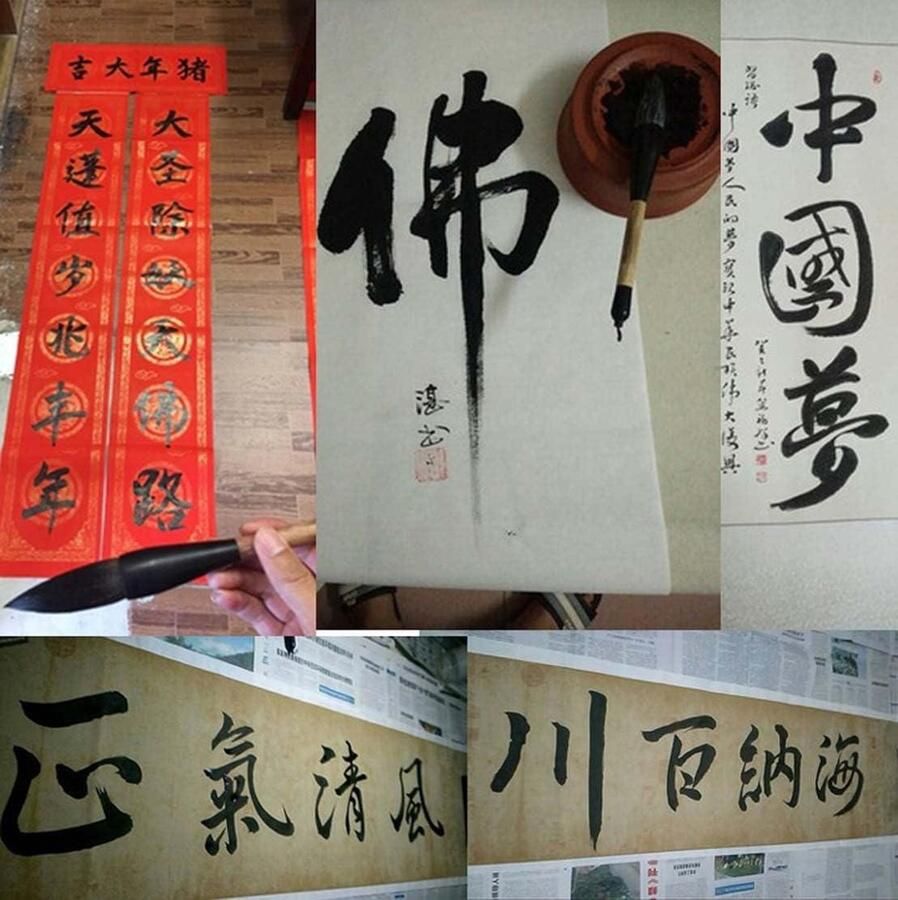 猪年大吉
大圣除妖天佛路
天蓬值岁兆丰年
佛
湛书
中國夢
中國夢人民的夢實現中華民族偉大復興
風清氣正
海納百川